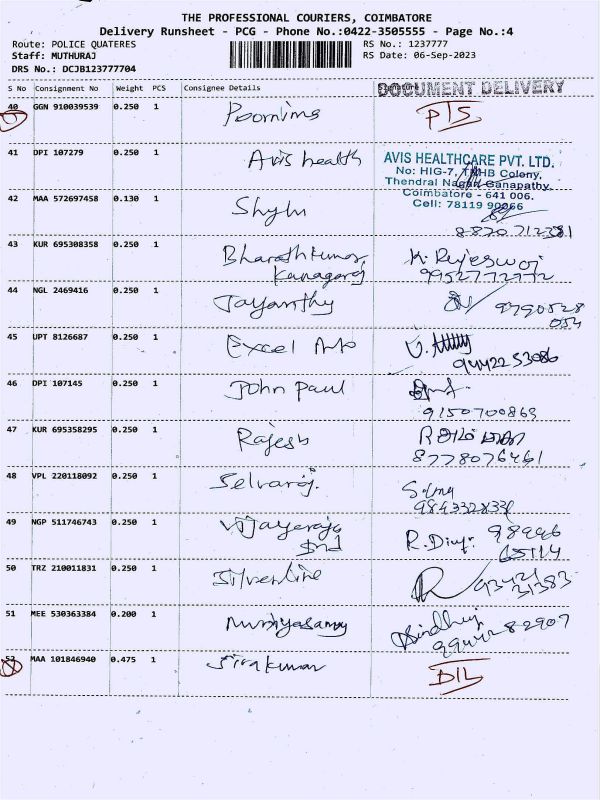 THE PROFESSIONAL COURIERS, COIMBATORE
Delivery Runsheet - PCG - Phone No.:0422-3505555 - Page No.:4
Route: POLICE QUATERES
RS No.: 1237777
Staff: MUTHURAJ
RS Date: 06-Sep-2023
DRS No.: DCJB123777704
S No Consignment No Weight PCS Consignee Details Signature
DOCUMENT DELIVERY
40 GGN 910039539 0.250 1 Poornima PTS
41 DPI 107279 0.250 1 Avis health
AVIS HEALTHCARE PVT. LTD.
No: HIG-7, TNHB Colony,
Thendral Nagar, Ganapathy,
Coimbatore - 641 006.
Cell: 78119 90066
42 MAA 572697458 0.130 1 Shylu
8870712381
43 KUR 695308358 0.250 1 Bharathkumar K. Rajeswari
Kanagaraj 9952772772
44 NGL 2469416 0.250 1 Jayanthy 9790528
054
45 UPT 8126687 0.250 1 Excel Auto
94422 53086
46 DPI 107145 0.250 1 John Paul
9150700863
47 KUR 695358295 0.250 1 Rajesh
8778076461
48 VPL 220118092 0.250 1 Selvaraj.
49 NGP 511746743 0.250 1 Vijayaraja R. Divy: 98946
Ind 65114
50 TRZ 210011831 0.250 1 Silverline 93421
31383
51 MEE 530363384 0.200 1 Sindhuj
99442 82907
52 MAA 101846940 0.475 1 Sivakumar DIL